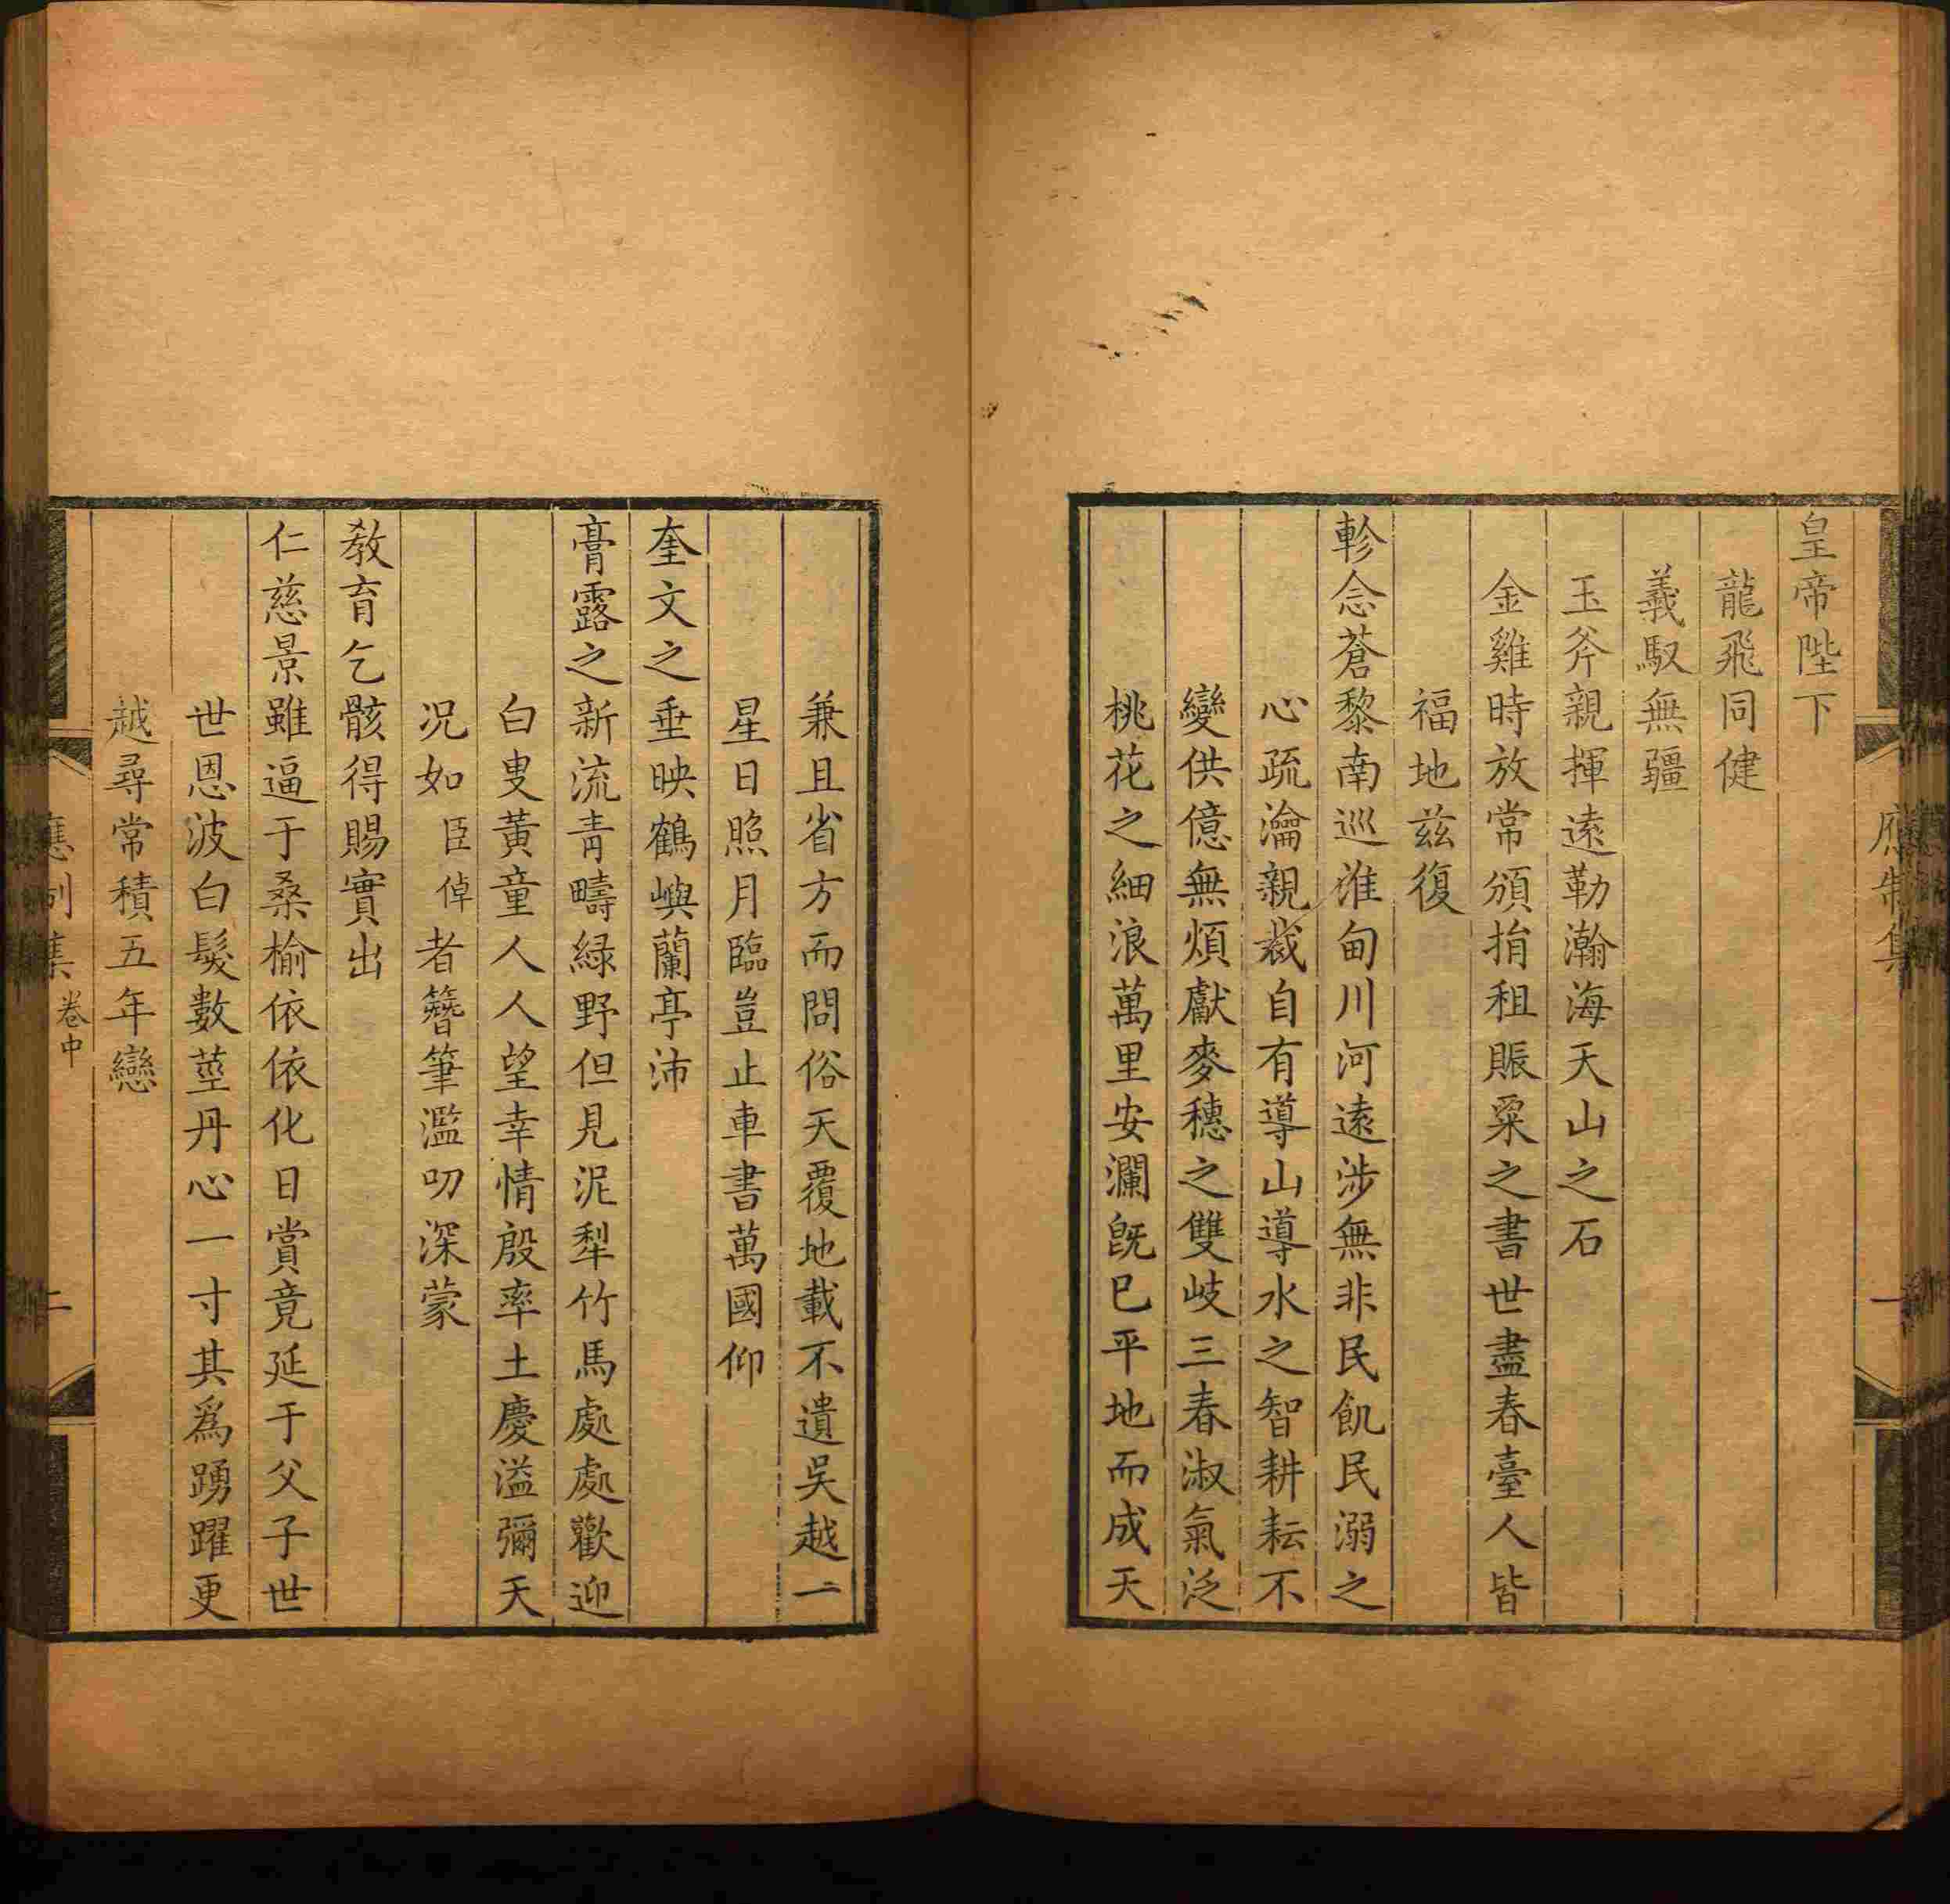 皇帝陛下
龍飛同健
羲馭無疆
玉斧親揮遠勒瀚海天山之石
金雞時放常頒捐租賑粟之書世盡春臺人皆
福地茲復
軫念蒼黎南巡淮甸川河遠涉無非民飢民溺之
心疏瀹親裁自有導山導水之智耕耘不
變供億無煩獻麥穗之雙岐三春淑氣泛
桃花之細浪萬里安瀾旣巳平地而成天
應制集
一
兼且省方而問俗天覆地載不遺吳越一
星日照月臨豈止車書萬國仰
奎文之垂映鶴嶼蘭亭沛
膏露之新流青疇綠野但見泥犁竹馬處處歡迎
白叟黃童人人望幸情殷率土慶溢彌天
况如臣倬者簪筆濫叨深蒙
教育乞骸得賜實出
仁慈景雖逼于桑榆依依化日賞竟延于父子世
世恩波白髮數莖丹心一寸其爲踴躍更
越尋常積五年戀
應制集
卷中
二